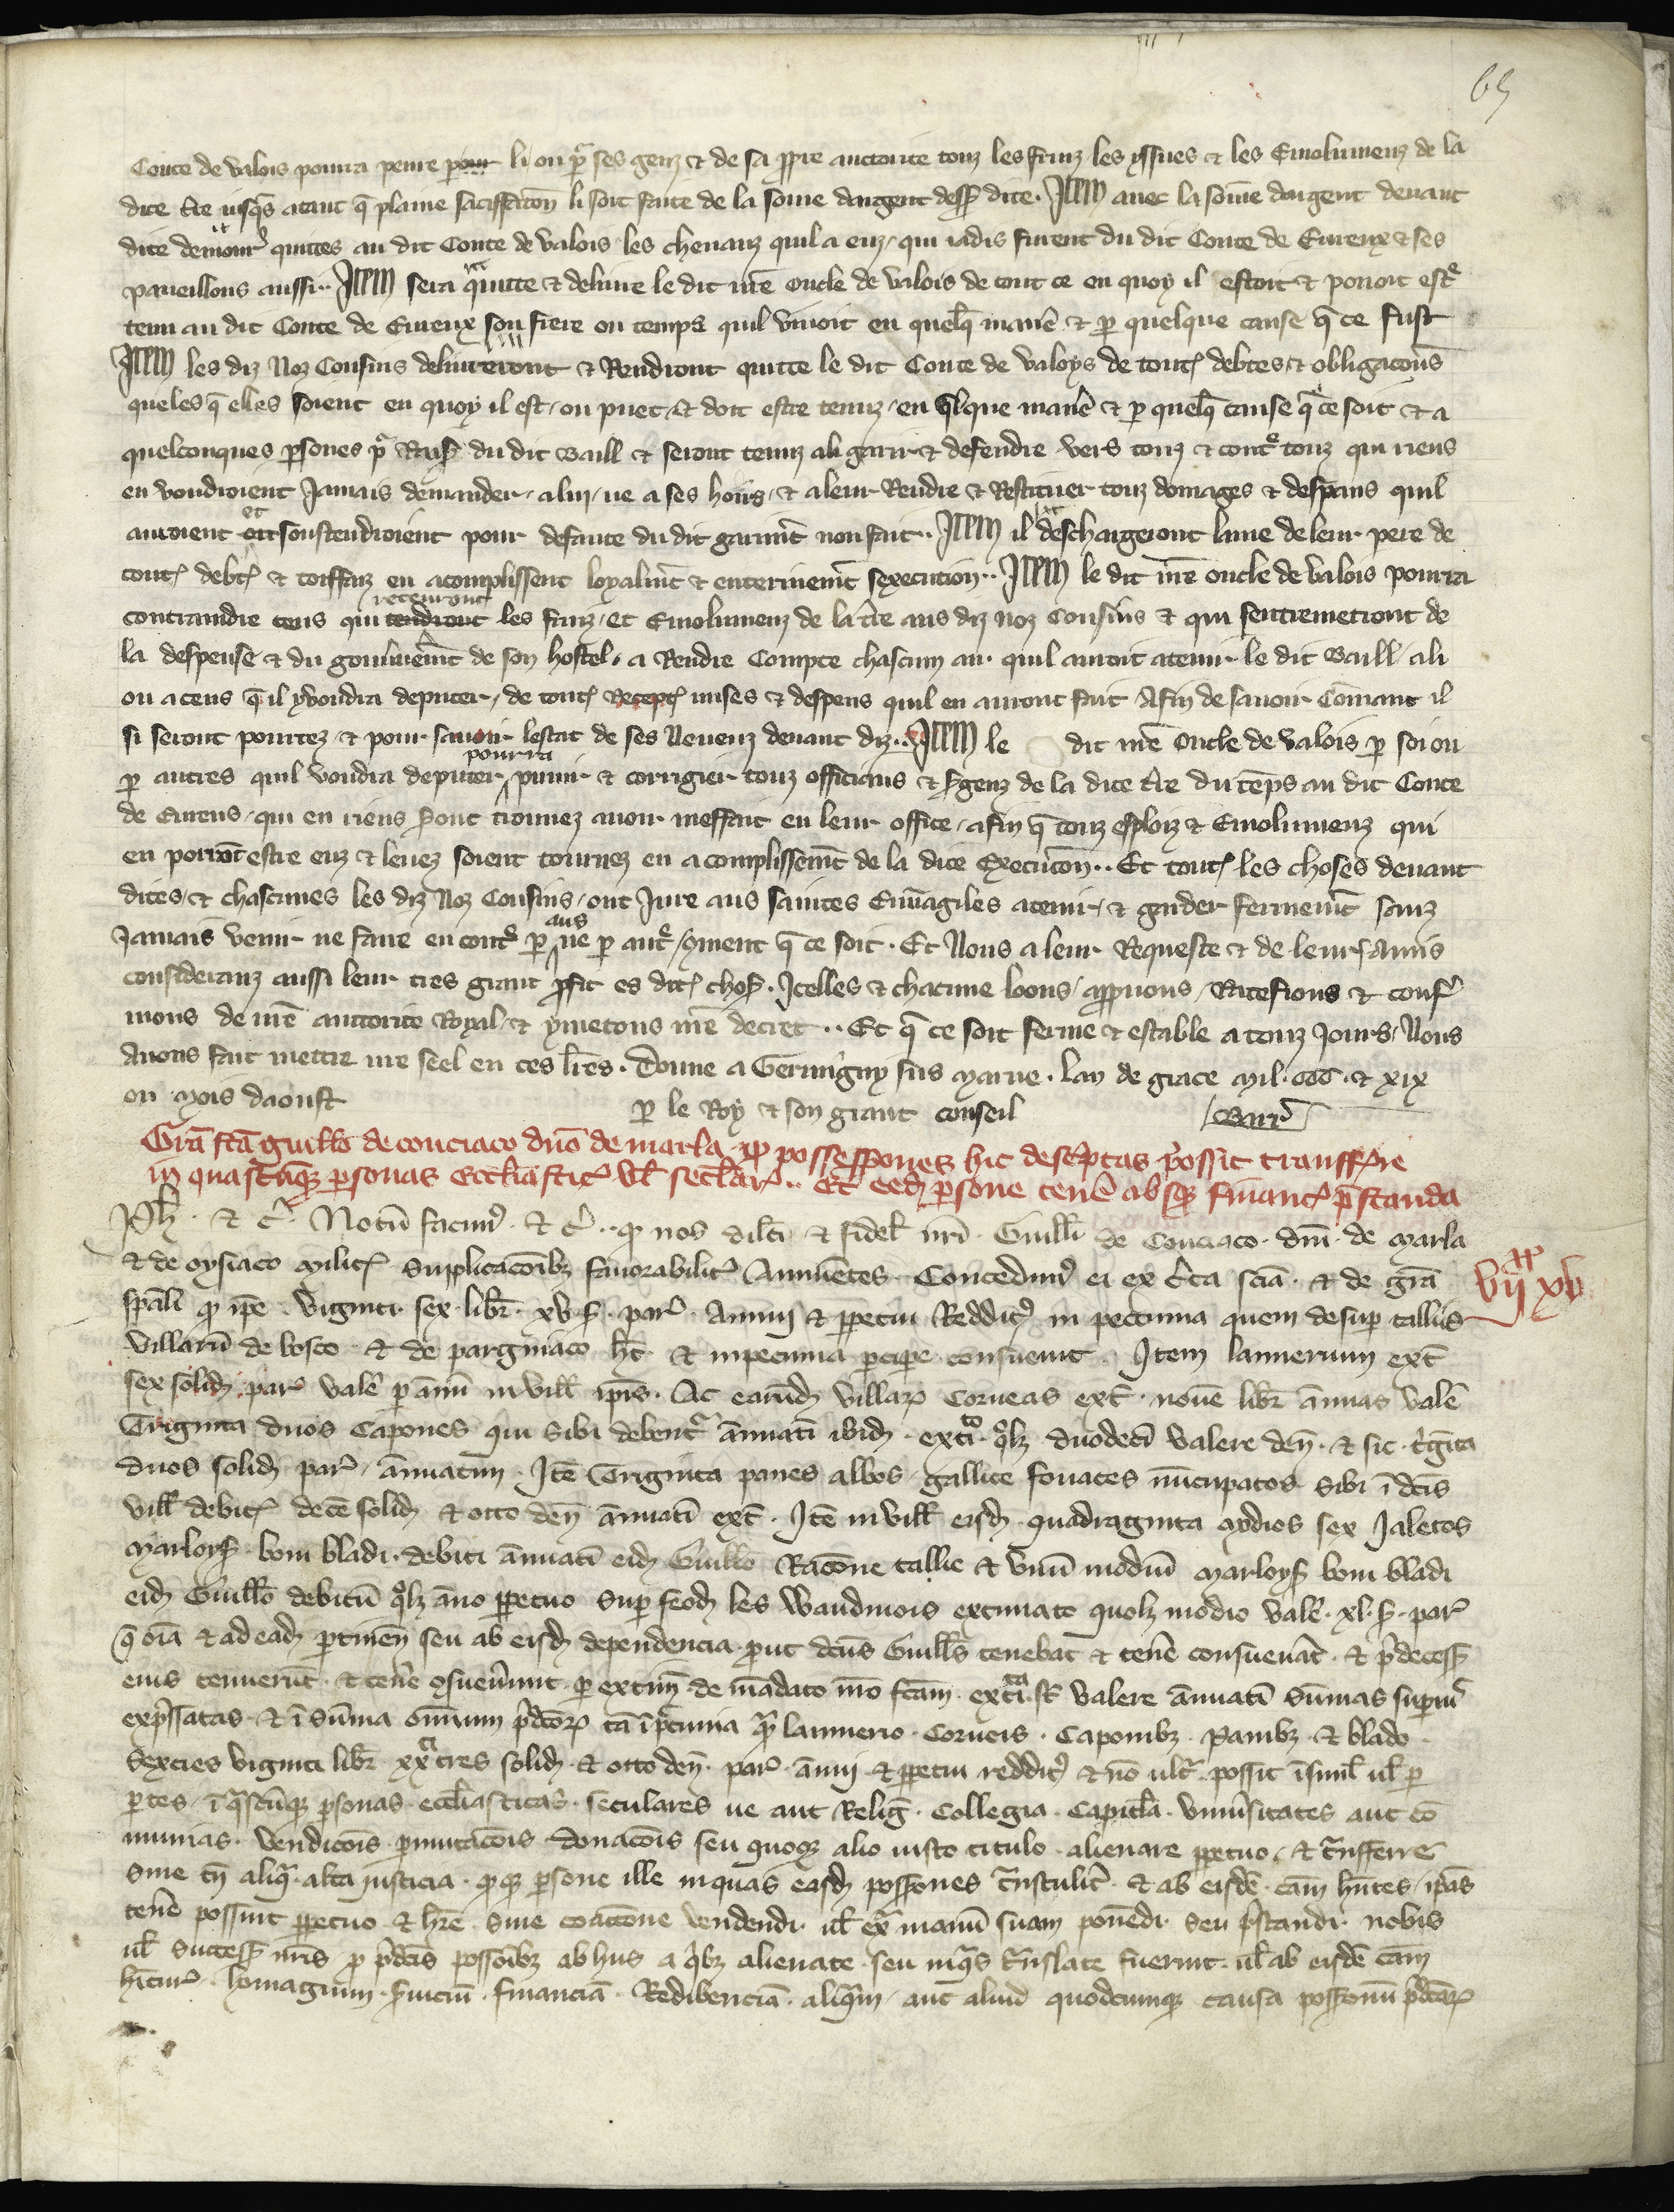 65
Conte de Valois pourra penre pour li ou par ses genz et de sa ppre auctorite touz les fruiz les yssues et les Emolumenz de la
dite t̄re iusqs atant q̄ plaine satisffacon̄ li soit faite de la some dargent dess dite. Item auec la somme dargent deuant
dite demour̄ quittes au dit Conte de Valois les cheuaux quil a euz, qui iadis furent du dit Conte de Eureux et ses
paueillons aussi.. Item sera quitte et deliure le dit nr̄e oncle de Valois de tout ce en quoy il estoit et pouoit estr̄
tenu au dit Conte de Eureux son frere ou temps quil viuoit en quelq̄ manie᷑ et p quelque cause q̄ ce fust
Item les diz Noz Cousins deliureront et Rendront quitte le dit Conte de Valoys de tout̄ debtes et obligacons
queles q̄ elles soient en quoy il est, ou puet et doit estre tenuz, en qlque manie᷑ et p quelq̄ cause q̄ ce soit et a
quelconques psones p̄ Rais du dit Baill et seront tenuz ali garir et defendre vers touz et contr̄ touz qui riens
en voudroient Jamais demander, a lui, ne a ses hoirs, et a leur Rendre et Restituer touz domages et despans quil
auroient et soustendroient pour defaute du dit garimt̄ non fait.. Item il deschargeront lame de leur pere de
tout̄ debt̄ et torffaiz en acomplissent loyalmt̄ et enterinemt̄ sexecution.. Item le dit nr̄e oncle de Valois pourra
contraindre ceus qui tendront receuront les fruiz, et Emolumenz de la t̄re aus diz noz Cousins et qui sentremetront de
la despense et du gouuernemt̄ de son hostel, a Rendre Compte chascun an quil auroit atenir le dit Baill, ali
ou a ceus q̄ il y voudra deputer, de tout̄ Recept̄ mises et despens quil en auront fait, Afin de sauoir Comant il
si seront pourtez et pour sauoir lestat de ses Neueuz deuant diz.. Item le dit nr̄e oncle de Valois p soi ou
p autres quil voudra deputer, pourra punir et corrigier touz officiaus et sgenz de la dite t̄re du tēps au dit Conte
de Eureus, qui en riens sont trouuez auoir meffait en leur office, afin q̄ touz esploiz et Emolumenz qui
en porrōt estre euz et leuez soient tournez en acomplissemt̄ de la dite Execucon̄.. Et tout̄ les choses deuant
dites, et chascunes les diz Noz Cousins, ont Jure aus saintes Euuāgiles atenir, et garder fermemt̄ sanz
Jamais venir ne faire en contr̄ p aus ne p autr̄, ꝯment q̄ ce soit. Et Nous a leur Requeste et de leurs amis
considéranz aussi leur tres grant pfit es dit̄ chos. Icelles et chacune loons, appuons, Ratefions et conf᷑
mons de nr̄e auctorite Royal, et y metons nr̄e decret.. Et q̄ ce soit ferme et estable a touz Jours, Nous
Auons fait mettre nr̄e seel en ces lr̄es. Donne a Germigny sus Marne. Lan de grace Mil. CCC. et XIX
ou Mois daoust p le Roy et son grant conseil
Grā fc̄a guill̄o de couciaco dn̄o de marla ꝙ possessiones hic desc̄ptas possit transff᷑re
in quascūq̄ psonas ecclīastic̄ ul̄ sec̄lar̄.. Et eed̄ psone tene᷑ absq̄ financ̄ p̄standa
Ph̄. et c̄. Notū facim᷒. et c̄.. ꝙ nos dil̄ci et fidel̄ nr̄i Guill̄i de Couciaco. dn̄i de Marla
et de Oysiaco milit̄. Supplicacōib᷒ fauorabilit̄ Annuentes. Concedim᷒ ei ex c̄ta sciā. et de grā
spāli ꝙ ip̄e Viginti. sex. libr̄. XV. s̄. par̄. Annui et ppetui Reddit᷒ in peccunia quem desup talliis
villarū de bosco et de parginiaco h̄t et in pecunia pcipe consueuit. Item lannerium ext̄
sex solid̄ par̄ vale᷑ p annū in vill̄ ip̄is. Ac earūd̄ villar̄ Corueas ext̄. nouē libr̄ annuas vale᷑
Triginta duos Capones qui sibi debent̄ annuatī ibid̄. ext̄i. ql̄z duodecī valere den̄. et sic t̄ginta
duos solid̄ par̄ annuatim. Itē Triginta panes albos gallice fouaces nūcupatos sibi ī dc̄is
vill̄ debit̄ decē solid̄ et octo den̄ annuatī ext̄. Itē in vill̄ eisd̄. quadraginta modios sex Jaletos
Marloys̄ boni bladi. debiti annuatī eid̄ Guill̄o Racōne tallie et vnū modiū Marloys̄ boni bladi
eid̄ Guill̄o debitū ql̄z āno ppetuo sup feod̄ les Waudinois extimato quol̄z modio vale᷑. XL. s̄. par̄
q̄ oīa et ad ead̄ ptinen̄ seu ab eisd̄ dependencia. put dc̄us Guill̄s tenebat et tene᷑ consueuāt. et p̄decess̄
eius tenuerūt. et tene᷑ ꝯsueuerunt. p extim̄ de mādato nr̄o fc̄am. ext̄i. st̄ valere annuatī Sūmas supius
exp̄ssatas. et ī sūma omnium p̄dc̄or̄ tā ī pecunia q̄ lannerio. Corueis. Caponib᷒. Panib᷒. et blado
Sexcies viginti libr̄ XX tres solid̄ et octo den̄. par̄. annui et ppetui reddit᷒ et nō ult̄. possit īsimul ul̄ p
ptes, ī q̄scūq̄ psonas eccl̄iasticas. seculares ue aut Reliḡ. Collegia. Capitl̄a. Vniu᷑sitates aut cō
munias. vendicōis pmutacōis donacōis seu quoq̄ alio iusto titulo alienare ppetuo, et t̄nsferre
Sine tn̄ aliq̄. alta justicia. ꝙq̄ psone ille in quas easd̄ possiones t̄nstulit̄. et ab eisdē cām hn̄tes ip̄as
tene᷑ possint ppetuo et hr̄e. Sine coaccōne vendendi. ul̄ ext̄ manū suam ponēdi. seu p̄standi nobis
ul̄ successs̄ nr̄is p p̄dc̄is possōib᷒ ab hiis a q̄b᷒ alienate seu in q̄s t̄nslate fuerint. ul̄ ab eisdē cām
hīturis. homagium. s̄uiciū. financiā. Redibenciā. aliq̄m aut aliud quodcumq̄ causa possionū p̄dc̄ar̄